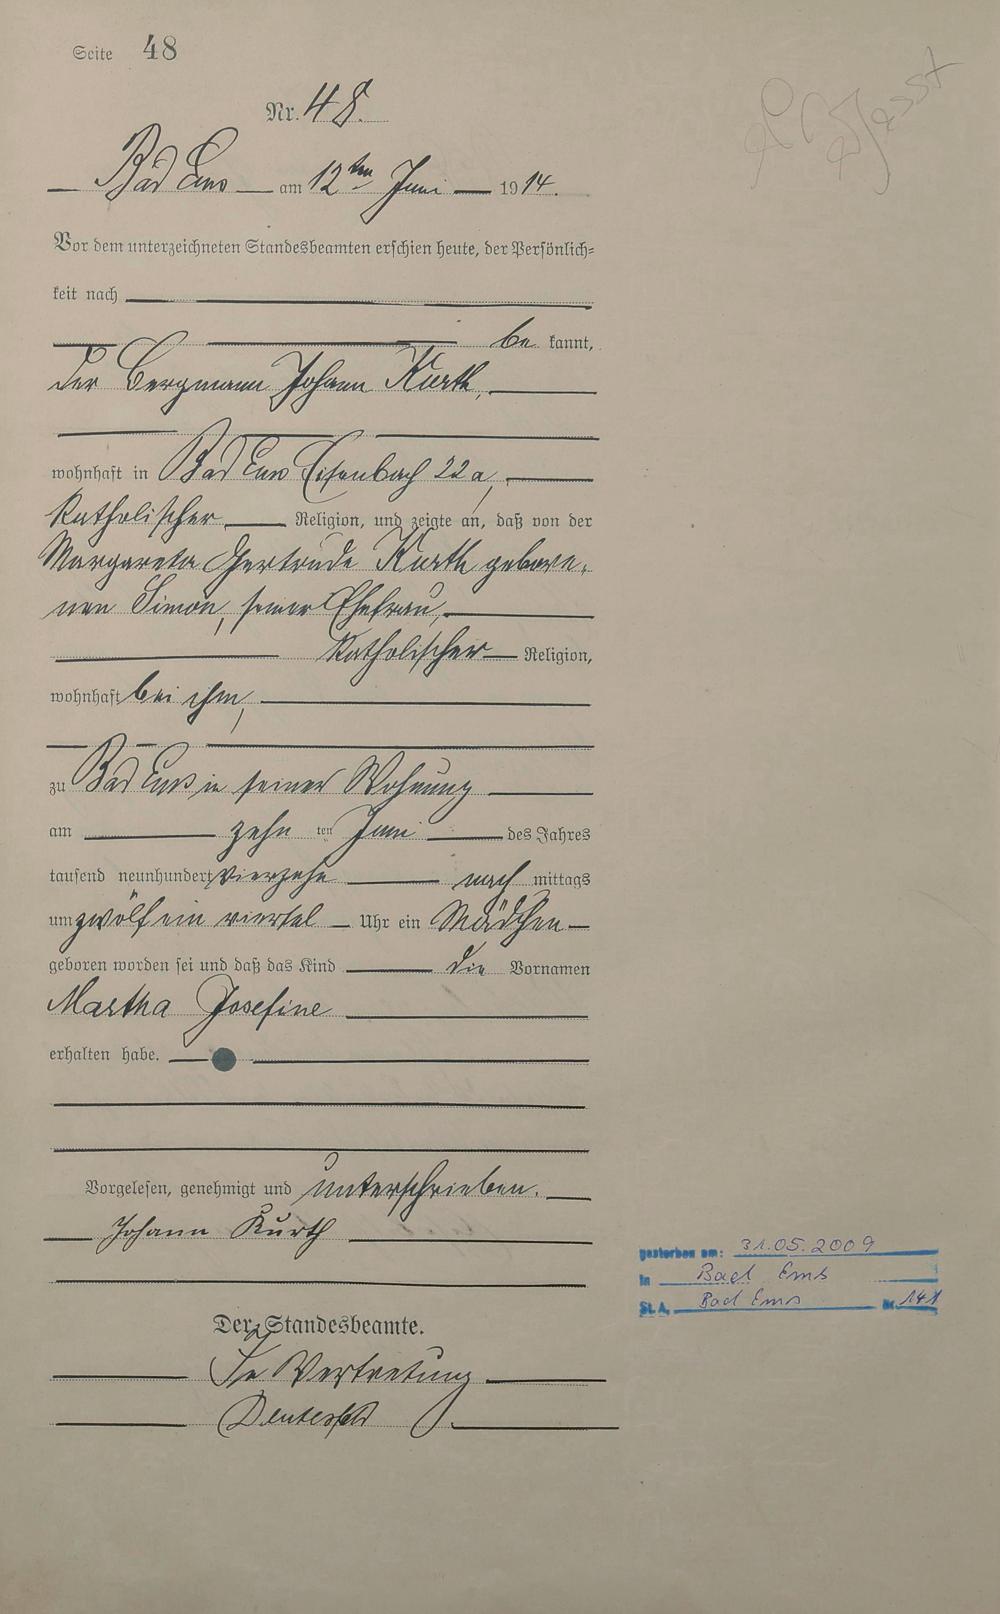 Seite 48
Nr. 48.
Bad Ems am 12ten Juni 1914.
Vor dem unterzeichneten Standesbeamten erschien heute, der Persönlich=
keit nach
be kannt,
der Bergmann Johann Kurth,
wohnhaft in Bad Ems Eisenbach 22a,
katholischer Religion, und zeigte an, daß von der
Margareta Gertrude Kurth gebore-
nen Simon, seiner Ehefrau,
katholischer Religion,
wohnhaft bei ihm,
zu Bad Ems in seiner Wohnung
am zehn ten Juni des Jahres
tausend neunhundert vierzehn nach mittags
um zwölf ein viertel Uhr ein Mädchen
geboren worden sei und daß das Kind die Vornamen
Martha Josefine
erhalten habe.
Vorgelesen, genehmigt und unterschrieben.
Johann Kurth
Der Standesbeamte.
In Vertretung
gestorben am: 31.05.2009
in Bad Ems
St.A. Bad Ems Nr. 141